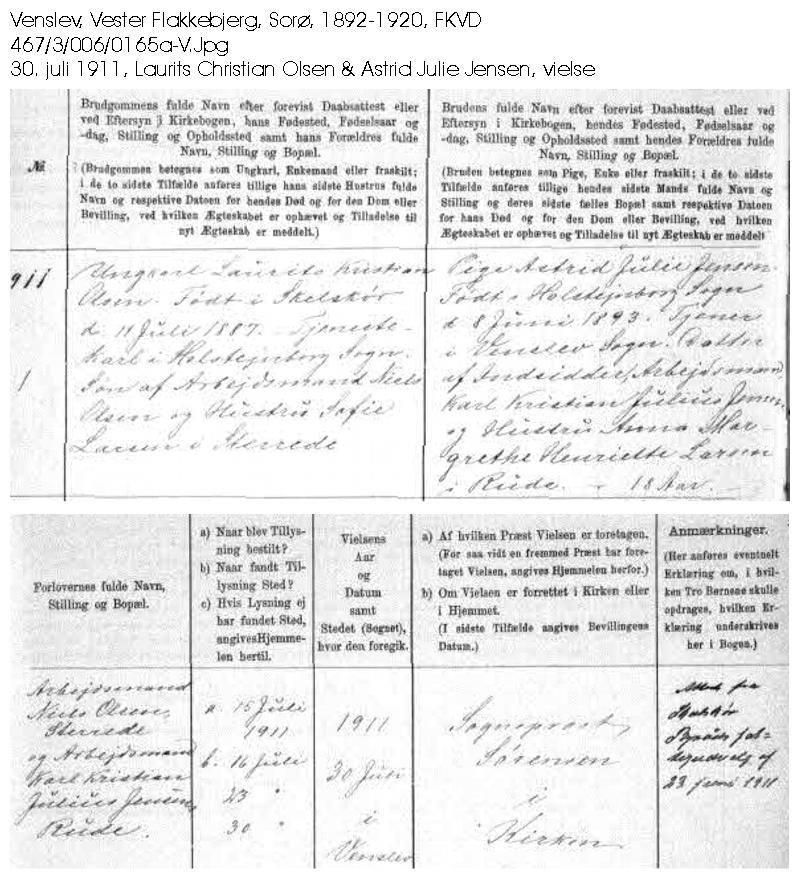 Venslev, Vester Flakkebjerg, Sorø, 1892-1920, FKVD
467/3/006/0165a-V.Jpg
30. juli 1911, Laurits Christian Olsen & Astrid Julie Jensen, vielse
№
Brudgommens fulde Navn efter forevist Daabsattest eller
ved Eftersyn i Kirkebogen, hans Fødested, Fødselsaar og
-dag, Stilling og Opholdssted samt hans Forældres fulde
Navn, Stilling og Bopæl.
(Brudgommen betegnes som Ungkarl, Enkemand eller fraskilt;
i de to sidste Tilfælde anføres tillige hans sidste Hustrus fulde
Navn og respektive Datoen for hendes Død og for den Dom eller
Bevilling, ved hvilken Ægteskabet er ophævet og Tilladelse til
nyt Ægteskab er meddelt.)
Brudens fulde Navn efter forevist Daabsattest eller ved
Eftersyn i Kirkebogen, hendes Fødested, Fødselsaar og
-dag, Stilling og Opholdssted samt hendes Forældres fulde
Navn, Stilling og Bopæl.
(Bruden betegnes som Pige, Enke eller fraskilt; i de to sidste
Tilfælde anføres tillige hendes sidste Mands fulde Navn og
Stilling og deres sidste fælles Bopæl samt respektive Datoen
for hans Død og for den Dom eller Bevilling, ved hvilken
Ægteskabet er ophævet og Tilladelse til nyt Ægteskab er meddelt
911
1
Ungkarl Laurits Kristian
Olsen. Født i Skelskør
d. 11 Juli 1887. Tjeneste-
karl i Holstejnborg Sogn.
Søn af Arbejdsmand Niels
Olsen og Hustru Sofie
Larsen i Sterrede
Pige Astrid Julie Jensen.
Født i Holstejnborg Sogn
d 8 Juni 1893. Tjener
i Venslev Sogn. Datter
af Indsidder, Arbejdsmand
Karl Kristian Julius Jensen
og Hustru Anna Mar-
grethe Henriette Larsen
i Rude. - 18 Aar.
Forlovernes fulde Navn,
Stilling og Bopæl.
a) Naar blev Tillys-
ning bestilt?
b) Naar fandt Til-
lysning Sted?
c) Hvis Lysning ej
har fundet Sted,
angives Hjemme-
len hertil.
Vielsens
Aar
og
Datum
samt
Stedet (Sognet),
hvor den foregik.
a) Af hvilken Præst Vielsen er foretagen.
(For saa vidt en fremmed Præst har fore-
taget Vielsen, angives Hjemmelen herfor.)
b) Om Vielsen er forrettet i Kirken eller
i Hjemmet.
(I sidste Tilfælde angives Bevillingens
Datum.)
Anmærkninger.
(Her anføres eventuelt
Erklæring om, i hvil-
ken Tro Børnene skulle
opdrages, hvilken Er-
klæring underskrives
her i Bogen.)
Arbejdsmand
Niels Olsen,
Sterrede
og Arbejdsmand
Karl Kristian
Julius Jensen,
Rude.
a. 15 Juli
1911
b. 16 Juli
23 "
30 "
1911
30 Juli
i
Venslev
Sognepræst
Sørensen
i
Kirken
Attest fra
Skelskør
23 juni 1911